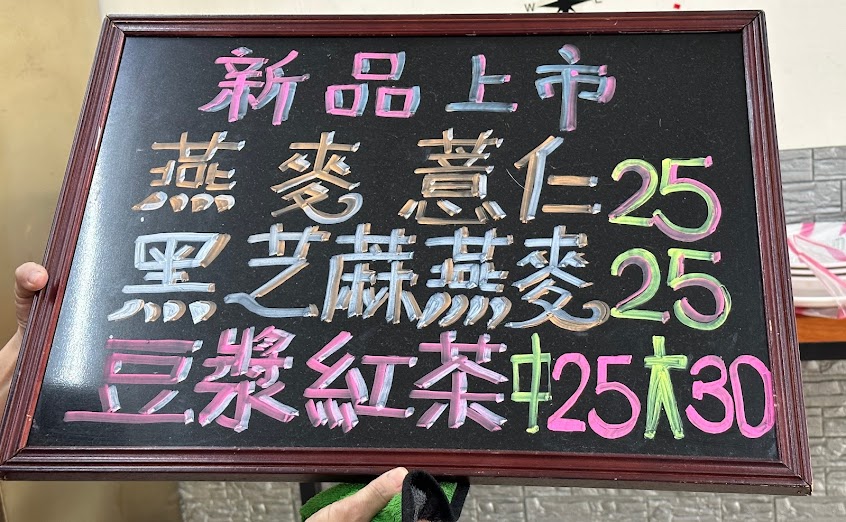 W E
新品上市
燕麥薏仁25
黑芝麻燕麥25
豆漿紅茶中25大30